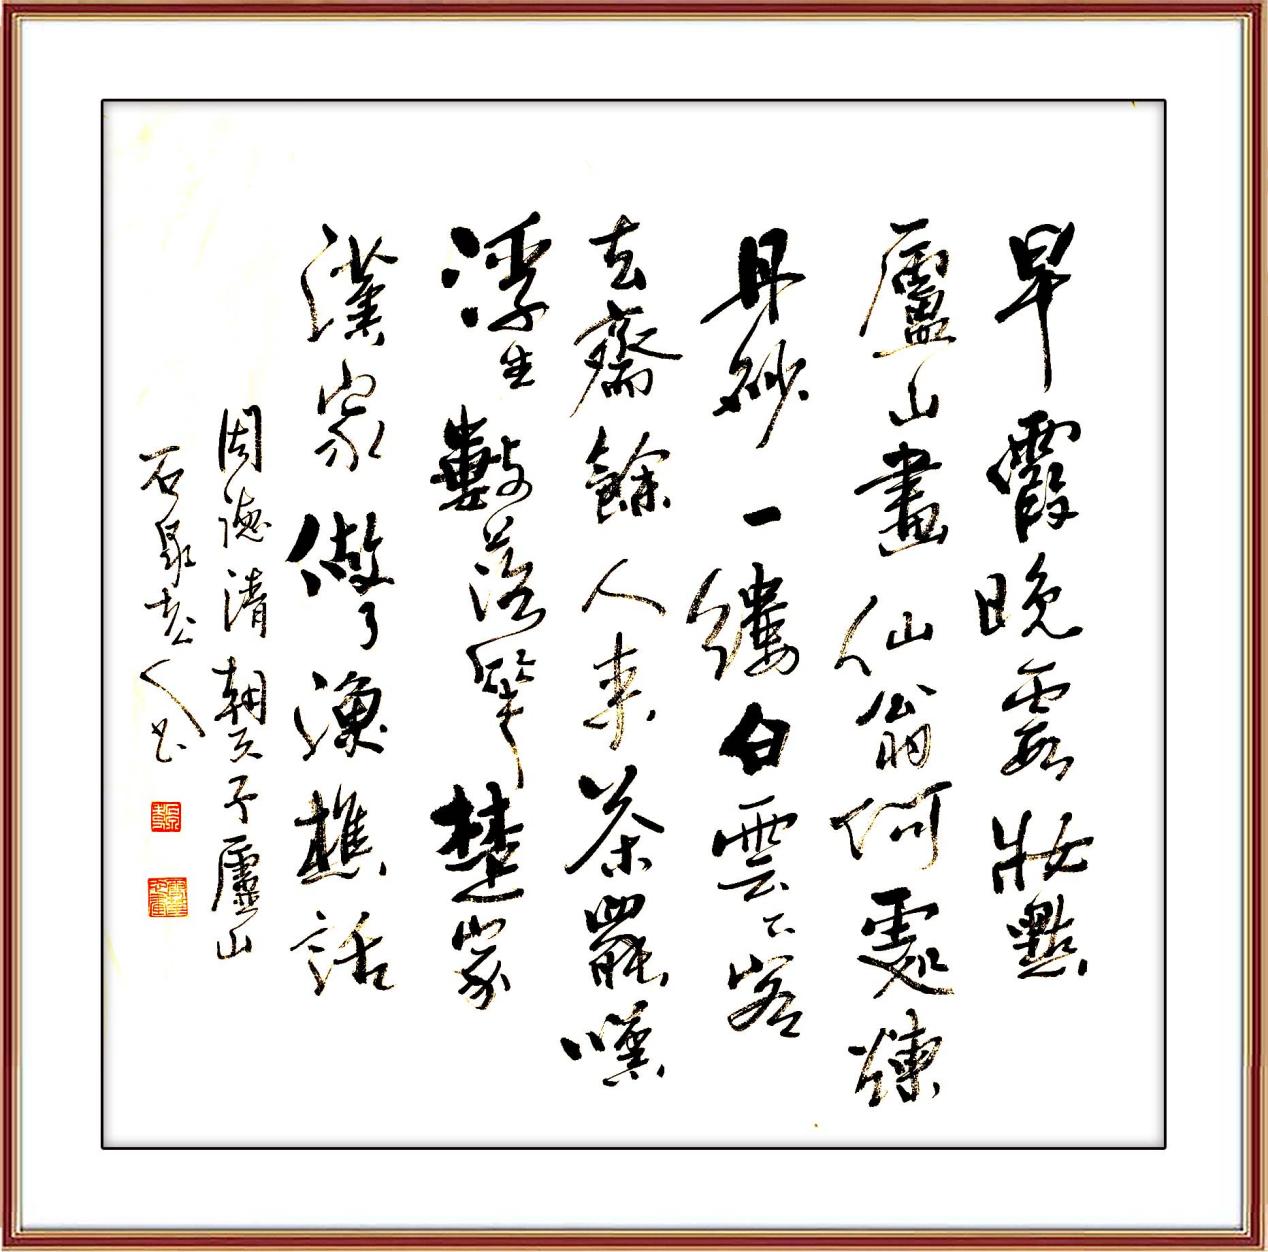 早霞晚霞妝點
廬山畫仙翁何處煉
丹砂一縷白雲下客
去齋餘人來茶罷嘆
浮生數落華楚家
漢家做了漁樵話
周德清朝天子廬山
石泉老人书